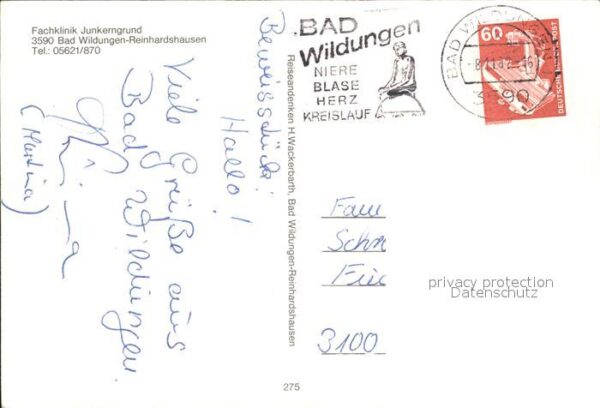 Fachklinik Junkerngrund
3590 Bad Wildungen-Reinhardshausen
Tel.: 05621/870
Beweisstück!
Hallo!
Viele Grüße aus
Bad Wildungen
(Martina)
Reiseandenken H. Wackerbarth, Bad Wildungen-Reinhardshausen
BAD
Wildungen
NIERE
BLASE
HERZ
KREISLAUF
BAD WILDUNGEN
3590
60
DEUTSCHE BUNDESPOST
Fam
Schn
3100
privacy protection
Datenschutz
275